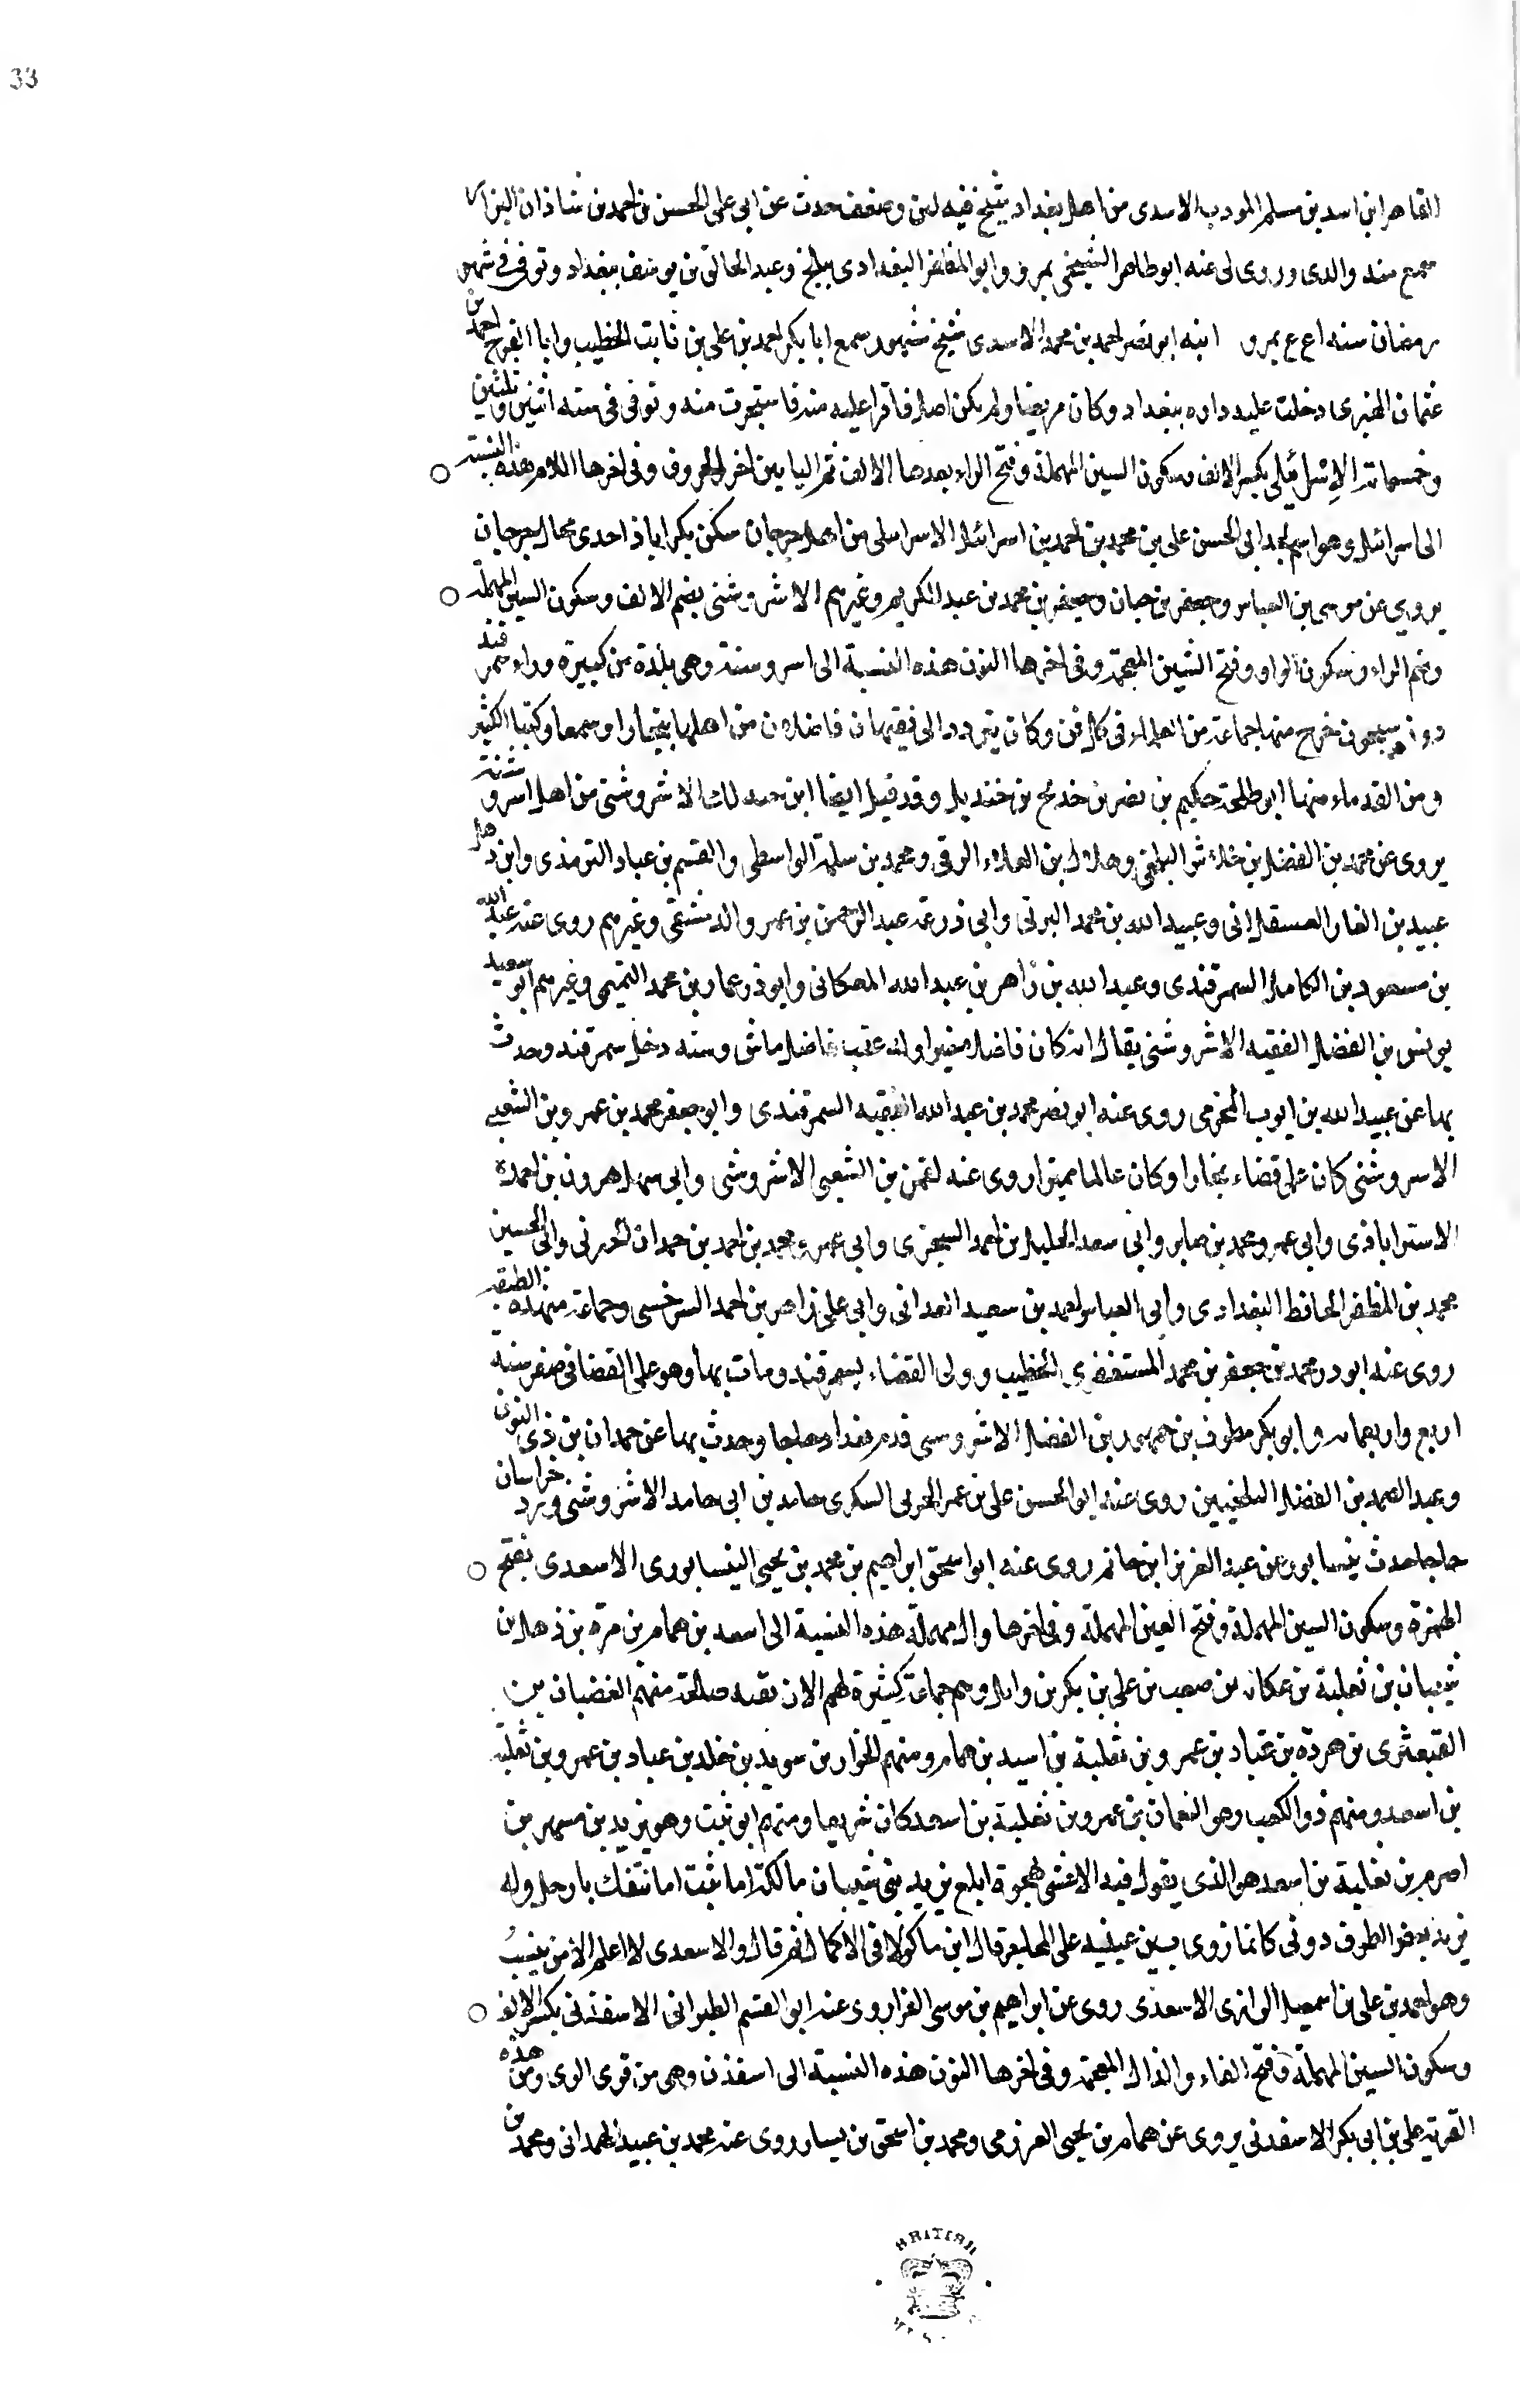 33
القاهر ابن اسد بن مسلم المودب الاسدى من اهل بغداد شيخ فيه لين وضعف حدث عن ابى على الحسن بن احمد بن شاذان البزار
سمع منه والدى وروى لى عنه ابو طاهر السنجى بمرو وابو المظفر البغدادى ببلخ وعبد الخالق بن يوسف ببغداد وتوفى فى شهر
رمضان سنه بمرو ابنه ابو نصر احمد بن محمد الاسدى شيخ سمع ابا بكر احمد بن على بن ثابت الخطيب وابا الفرج احمد بن
عثمان دخلت عليه داره ببغداد وكان مريضا ولم يكن اصل فاقرا عليه منه فاستجزت منه وتوفى فى سنه اثنين وثلثين
وخمسمائة الاسرائيلى بكسر الالف وسكون السين المهملة وفتح الراء بعدها الالف ثم اليا بين اخر الحروف وفى اخرها اللام هذه النسبة ○
الى اسرائيل وهو اسم لجد ابى الحسن على بن محمد بن احمد بن اسرائيل الاسراىلى من اهل جرجان سكن بكراباذ احدى محال جرجان
يروي عن موسى بن العباس وجعفر بن حبان وجعفر بن محمد بن عبد الكريم وغيرهم الاشروشنى بضم الالف وسكون السين المهملة ○
وضم الراء وسكون الواو وفتح الشين المعجمة وفى اخرها النون هذه النسبة الى اسروسنة وهى بلدة من كبيرة وراء سمرقند
دون سيحون خرج منها جماعة من العلماء فى كل فن وكان يتردد الى فقيهان فاضلان من اهلها ببخارا وسمعا وكتبا الكثير
ومن القدماء منها ابو طلحة حكيم بن نصر بن خديج بن خنديل وقد قيل ايضا ابن الاشروشنى من اهل اسروشنة
يروى عن محمد بن الفضل بن البلخى وهلال ابن العلاء الرقى ومحمد بن سلمة الواسطى والقسم بن عباد الترمذى وابن
عبيد بن الغاز العسقلانى وعبيد الله بن محمد البرتى وابى زرعة عبد الرحمن بن عمرو الدمشقى وغيرهم روى عنه عبد الله
بن مسعود بن الكامل السمرقندى وعبد الله بن زاهر بن عبد الله وابو ذر عمار بن محمد التميمى وغيرهم ابو سعيد
يونس بن الفضل الفقيه الاشروشنى يقال انه كان فاضلا وله عقب فاضل دخل سمرقند وحدث
بها عن عبيد الله بن ايوب المخرمى روى عنه ابو نصر محمد بن عبد الله الفقيه السمرقندى وابو جعفر محمد بن عمرو بن الشعبى
الاسروشنى كان على قضاء بخارا وكان عالما مميزا روى عنه لقمن بن الشعبى الاشروشنى وابى سهل هرون بن احمد
الاستراباذى وابى عمرو محمد بن صابر وابى سعد الخليل بن احمد السجزى وابى عمرو محمد بن احمد بن حمدان وابى الحسين
محمد بن المظفر الحافظ البغدادى وابى العباس احمد بن سعيد المعدانى وابى على زاهر بن احمد السرخسى وجماعة من هذه الطبقة
روى عنه ابو ذر محمد بن جعفر بن محمد المستغفرى الخطيب وولى القضاء بسمرقند ومات بها وهو على القضا فى صفر سنة
اربع واربعماىه وابو بكر مطرف بن جمهور بن الفضل الاشروسنى قدم بغداد حاجا وحدث بها عن حمدان بن ذى النون
وعبد الصمد بن الفضل البلخيين روى عنه ابو الحسن على بن عمر الحربى السكرى حامد بن ابى حامد الاشروشنى ورد خراسان
حاجا حدث بنيسابور عن عبد العزيز ابن حاتم روى عنه ابو اسحق ابراهيم بن محمد بن يحيى النيسابورى الاسعدى بفتح ○
الهمزة وسكون السين المهملة وفتح العين المهملة وفى اخرها دال مهملة هذه النسبة الى اسعد بن همام بن مرة بن ذهل بن
شيبان بن ثعلبة بن عكابة بن صعب بن على بن بكر بن وايل وهم جماعة كثيرة لهم الان بقية صالحة منهم الغضبان بن
القبعثرى بن هوذة بن عباد بن عمرو بن ثعلبة بن اسعد بن همام ومنهم الخوار بن سويد بن خلد بن عباد بن عمرو بن ثعلبة
بن اسعد ومنهم ذو الكعب وهو النعمان بن عمرو بن ثعلبة بن اسعد كان شريفا ومنهم ابو ثبيت وهو يزيد بن مسهر بن
اصرم بن ثعلبة بن اسعد هو الذى يقول فيه الاعشى يهجوه ابلغ يزيد بنى شيبان مالكة ابا ثبيت اما تنفك يا رجل وله
يزيد يغض الطرف دونى كانما زوى بين عينيه على المحاجم قال ابن ماكولا فى الاكمال ثم قال والاسعدى لا اعلم الا من ينسب
وهو احمد بن على بن اسمعيل الرازى الاسعدى روى عن ابراهيم بن موسى الفرا روى عنه ابو القسم الطبرانى الاسفذنى بكسر الالف ○
وسكون السين المهملة وفتح الفاء والذال المعجمة وفى اخرها النون هذه النسبة الى اسفذن وهى من قرى الرى ومن هذه
القرية على بن ابى بكر الاسفذنى يروى عن همام بن يحيى العرزمى ومحمد بن اسحق بن يسار روى عنه محمد بن عبيد الهمدانى ومحمد بن
BRITISH